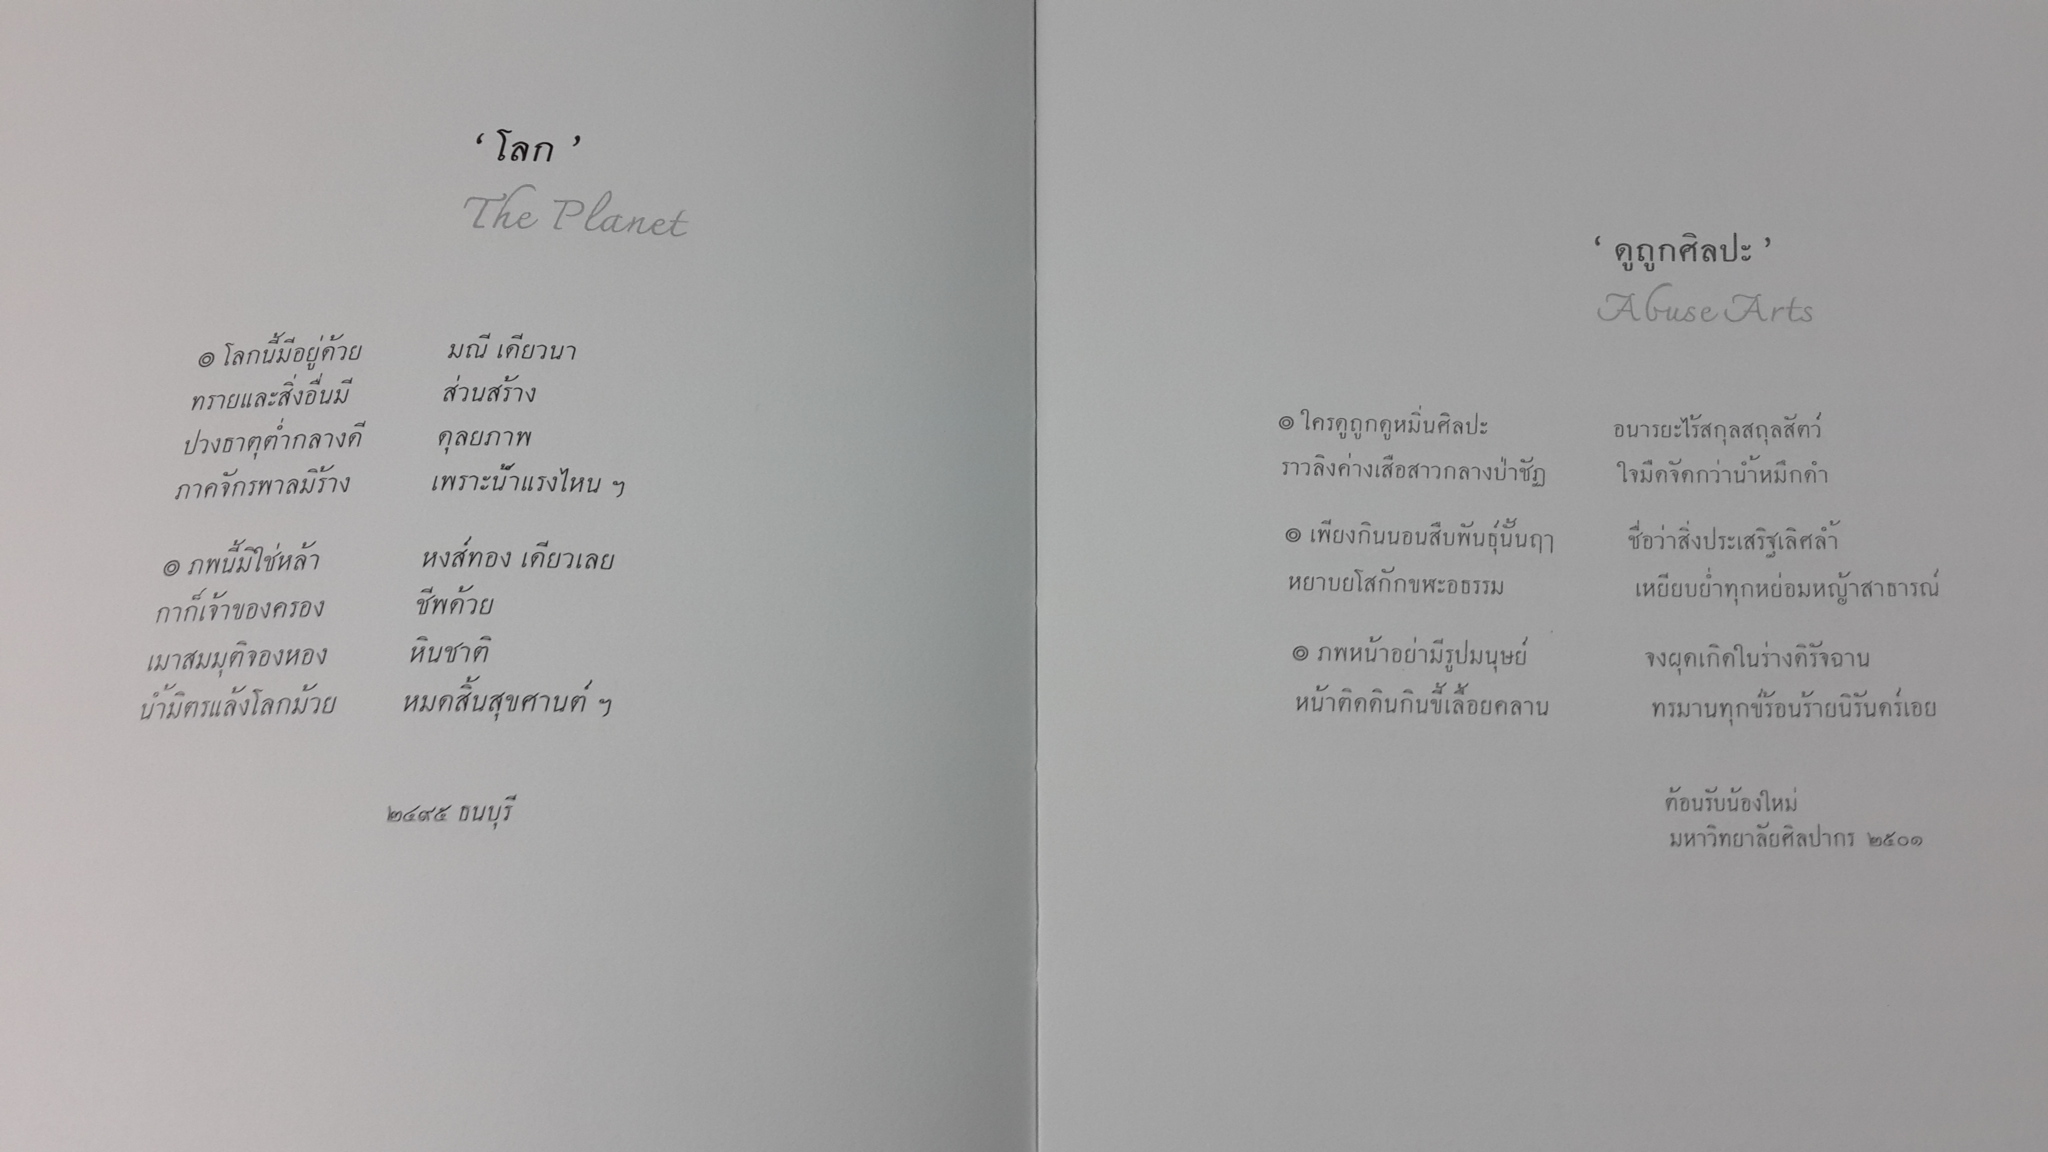 ‘ โลก ’
The Planet
๏ โลกนี้มีอยู่ด้วย มณี เดียวนา
ทรายและสิ่งอื่นมี ส่วนสร้าง
ปวงธาตุต่ำกลางดี ดุลยภาพ
ภาคจักรพาลมิร้าง เพราะน้ำแรงไหน ๆ
๏ ภพนี้มิใช่หล้า หงส์ทอง เดียวเลย
กาก็เจ้าของครอง ชีพด้วย
เมาสมมุติจองหอง หินชาติ
น้ำมิตรแล้งโลกม้วย หมดสิ้นสุขศานต์ ๆ
๒๔๙๕ ธนบุรี
‘ ดูถูกศิลปะ ’
Abuse Arts
๏ ใครดูถูกดูหมิ่นศิลปะ อนารยะไร้สกุลสถุลสัตว์
ราวลิงค่างเสือสาวกลางป่าชัฏ ใจมืดจัดกว่าน้ำหมึกดำ
๏ เพียงกินนอนสืบพันธุ์นั้นฤๅ ชื่อว่าสิ่งประเสริฐเลิศล้ำ
หยาบยโสกักขฬะอธรรม เหยียบย่ำทุกหย่อมหญ้าสาธารณ์
๏ ภพหน้าอย่ามีรูปมนุษย์ จงผุดเกิดในร่างดิรัจฉาน
หน้าติดดินกินขี้เลื้อยคลาน ทรมานทุกข์ร้อนร้ายนิรันดร์เอย
ต้อนรับน้องใหม่
มหาวิทยาลัยศิลปากร ๒๕๐๑